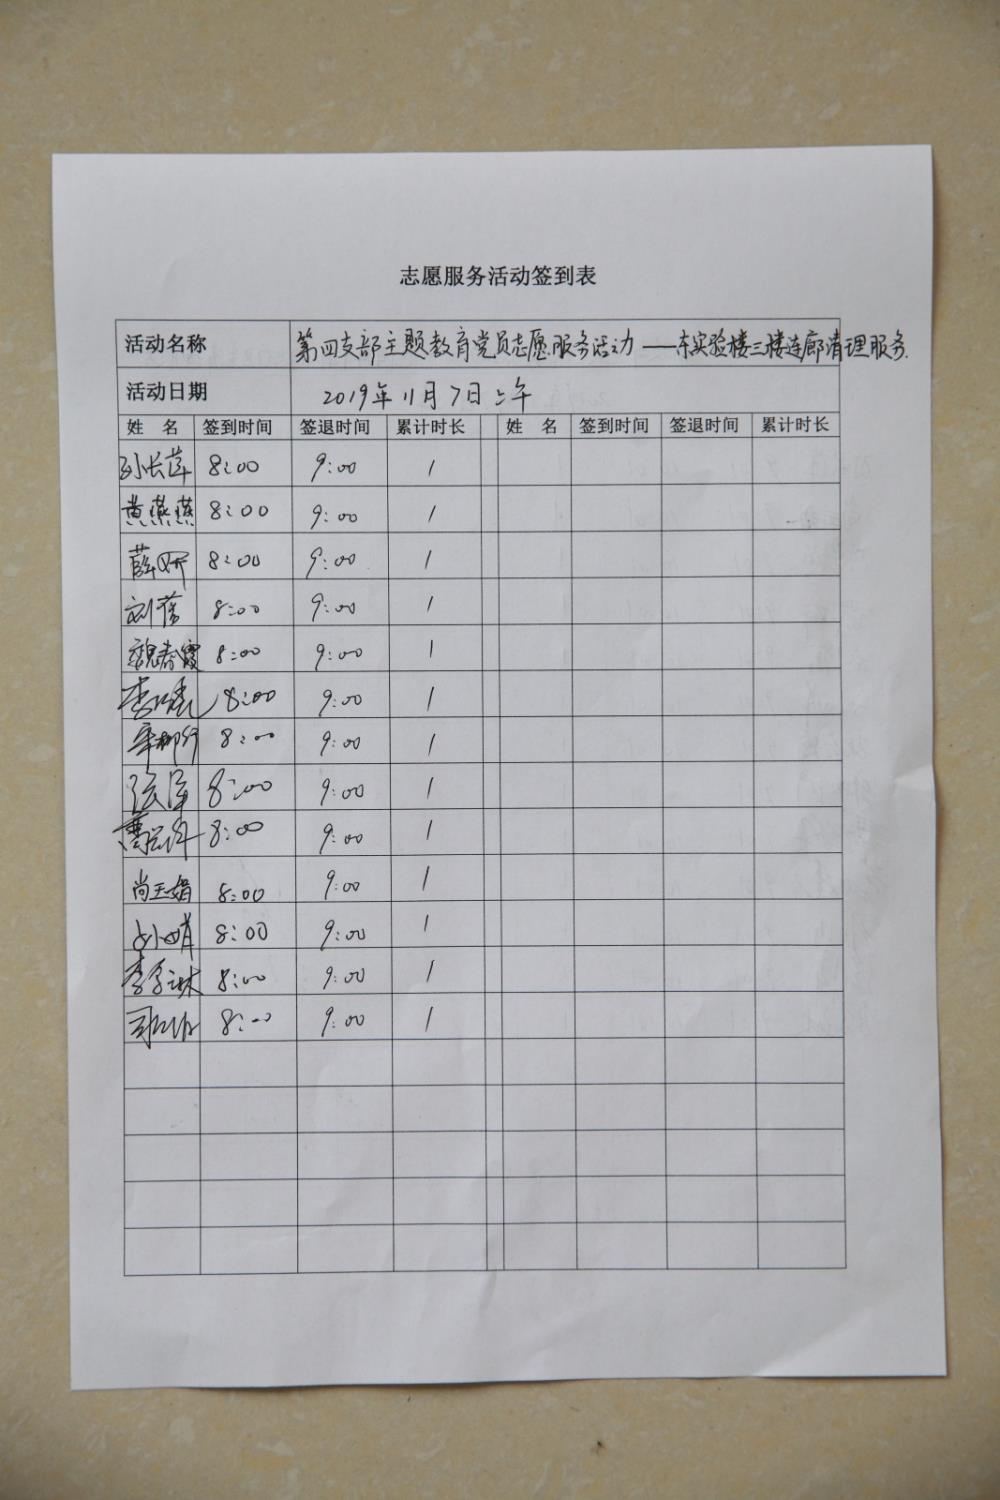 志愿服务活动签到表
活动名称 第四支部主题教育党员志愿服务活动——东实验楼三楼连廊清理服务.
活动日期 2019年11月7日上午
姓 名 签到时间 签退时间 累计时长 姓 名 签到时间 签退时间 累计时长
孙长萍 8:00 9:00 1
黄燕燕 8:00 9:00 1
薛妍 8:00 9:00 1
刘蓓 8:00 9:00 1
魏春霞 8:00 9:00 1
李 8:00 9:00 1
辛柳行 8:00 9:00 1
张 8:00 9:00 1
8:00 9:00 1
尚玉娟 8:00 9:00 1
孙娟 8:00 9:00 1
李 8:00 9:00 1
8:00 9:00 1